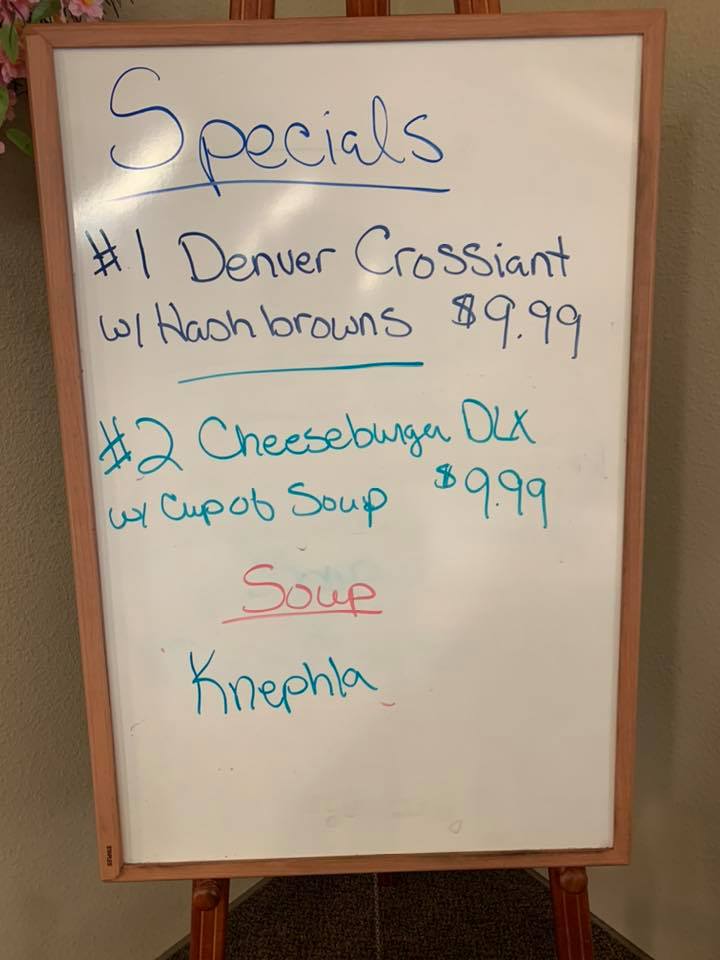 Specials
#1 Denver Crossiant
w/ Hashbrowns $9.99
#2 Cheeseburger DLX
w/ Cup of Soup $9.99
Soup
Knephla
STAPLES